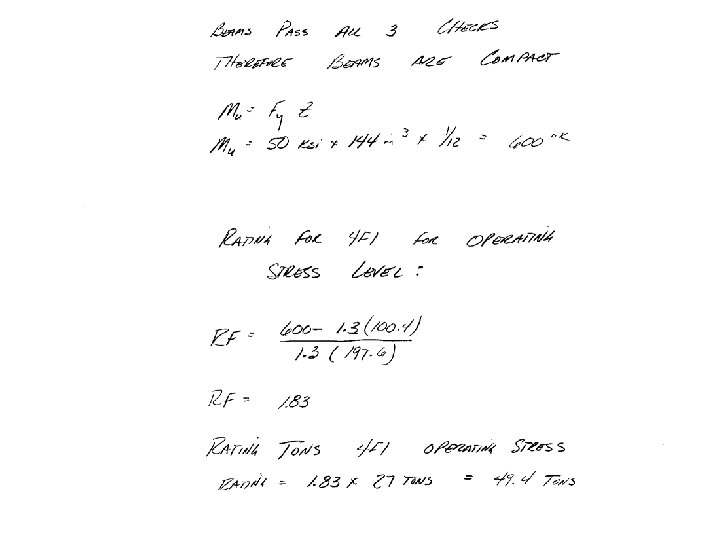 BEAMS PASS ALL 3 CHECKS
THEREFORE BEAMS ARE COMPACT
Mu = Fy Z
Mu = 50 ksi x 144 in³ x 1/12 = 600 "K
RATING FOR 4F1 FOR OPERATING
STRESS LEVEL:
RF = 600 - 1.3(100.4)
1.3 (197.6)
RF = 1.83
RATING TONS 4F1 OPERATING STRESS
RATING = 1.83 x 27 TONS = 49.4 TONS